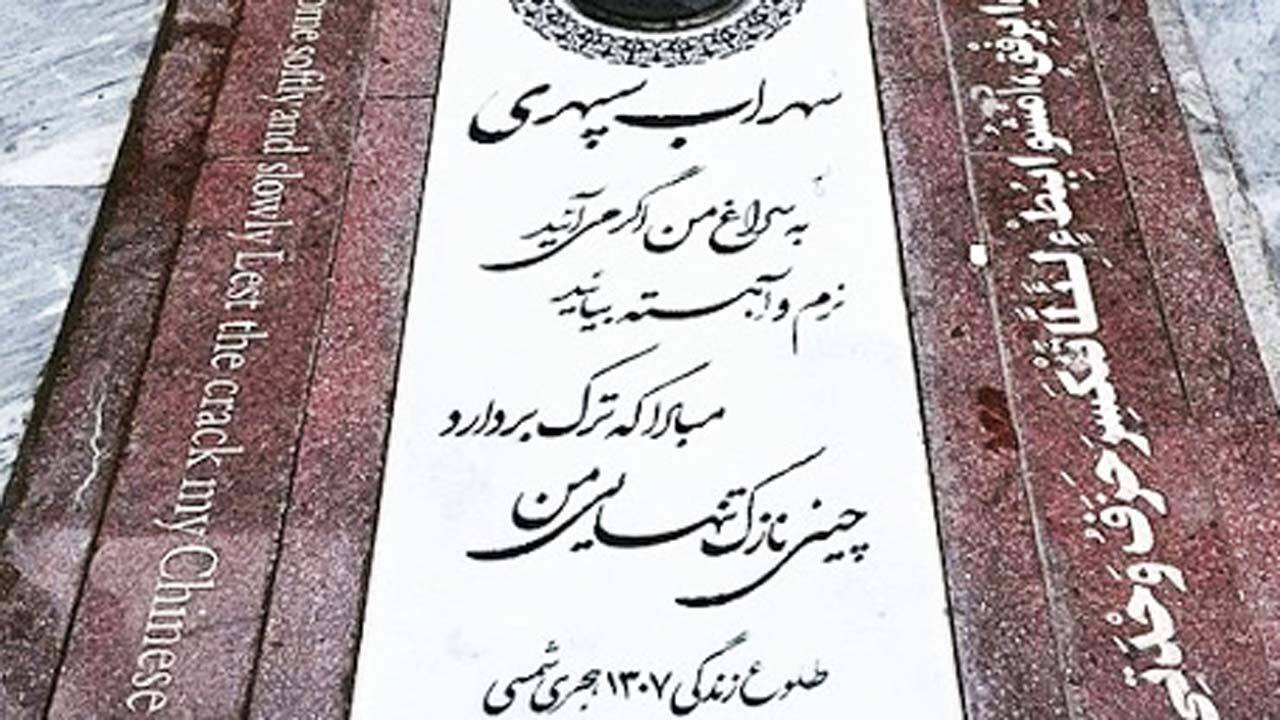 سهراب سپهری
به سراغ من اگر می‌آئید
نرم و آهسته بیائید
مبادا که ترک بردارد
چینی نازک تنهایی من
طلوع زندگی ۱۳۰۷ هجری شمسی
ome softly and slowly Lest the crack my Chinese
برفق، امشوا ببطء لئلا تنکسر خزف وحدتي